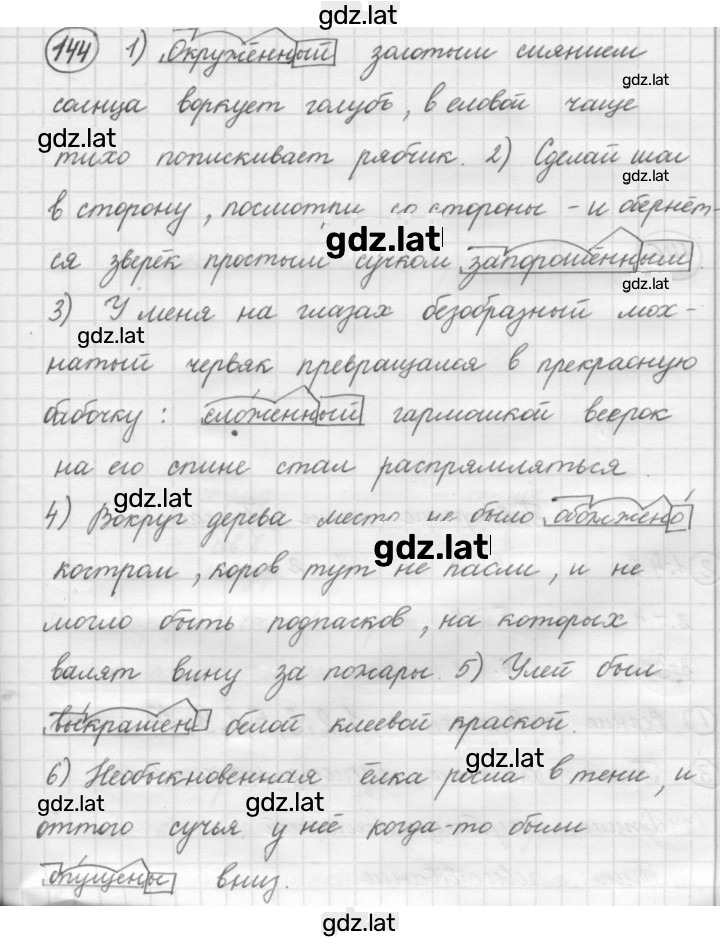 gdz.lat
144 1) Окружённый золотым сиянием
gdz.lat
солнца воркует голубь, в еловой чаще
gdz.lat
тихо попискивает рябчик. 2) Сделай шаг
gdz.lat
в сторону, посмотри со стороны - и обернёт-
gdz.lat
ся зверёк простым сучком запорошённым.
gdz.lat
3) У меня на глазах безобразный мох-
gdz.lat
натый червяк превращался в прекрасную
бабочку: сложенный гармошкой веерок
на его спине стал распрямляться.
gdz.lat
4) Вокруг дерева место не было обожжено
gdz.lat
костром, коров тут не пасли, и не
могло быть подпасков, на которых
валят вину за пожары. 5) Улей был
выкрашен белой клеевой краской.
gdz.lat
6) Необыкновенная ёлка росла в тени, и
gdz.lat gdz.lat
оттого сучья у неё когда-то были
опущены вниз.
gdz.lat